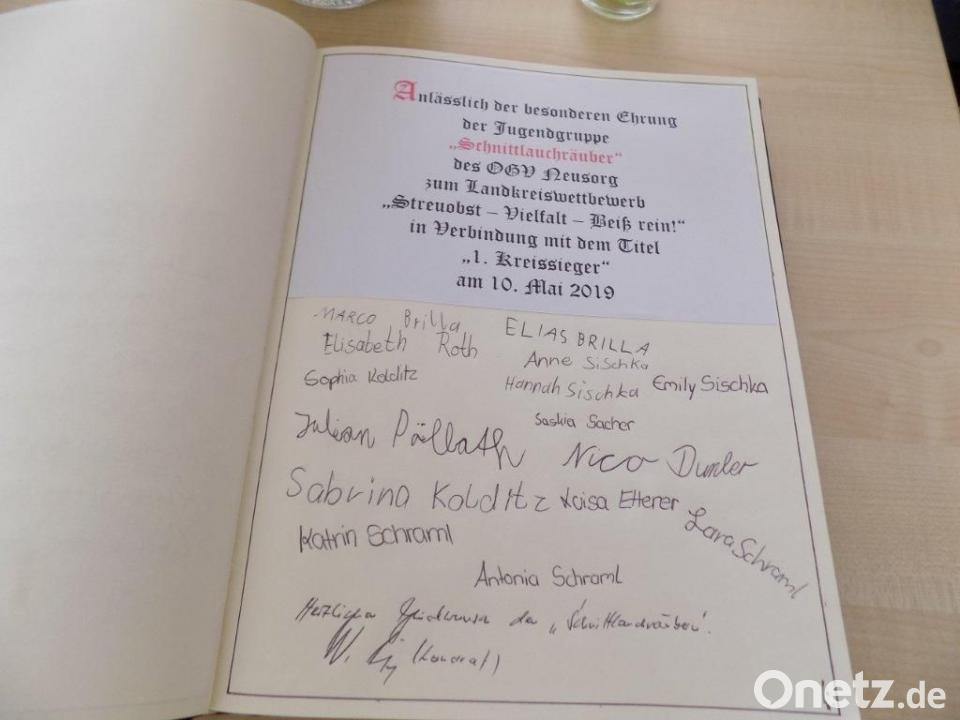 Anlässlich der besonderen Ehrung
der Jugendgruppe
„Schnittlauchräuber“
des OGV Neusorg
zum Landkreiswettbewerb
„Streuobst – Vielfalt – Beiß rein!“
in Verbindung mit dem Titel
„1. Kreissieger“
am 10. Mai 2019
MARCO Brilla
ELIAS BRILLA
Elisabeth Roth
Anne Sischka
Sophia Kolditz
Hannah Sischka
Emily Sischka
Saskia Sacher
Julian Pöllath
Nico Dumler
Sabrina Kolditz
Luisa Etterer
Lara Schraml
Katrin Schraml
Antonia Schraml
Herzlichen Glückwunsch den „Schnittlauchräubern“.
W. (Landrat)
Onetz.de